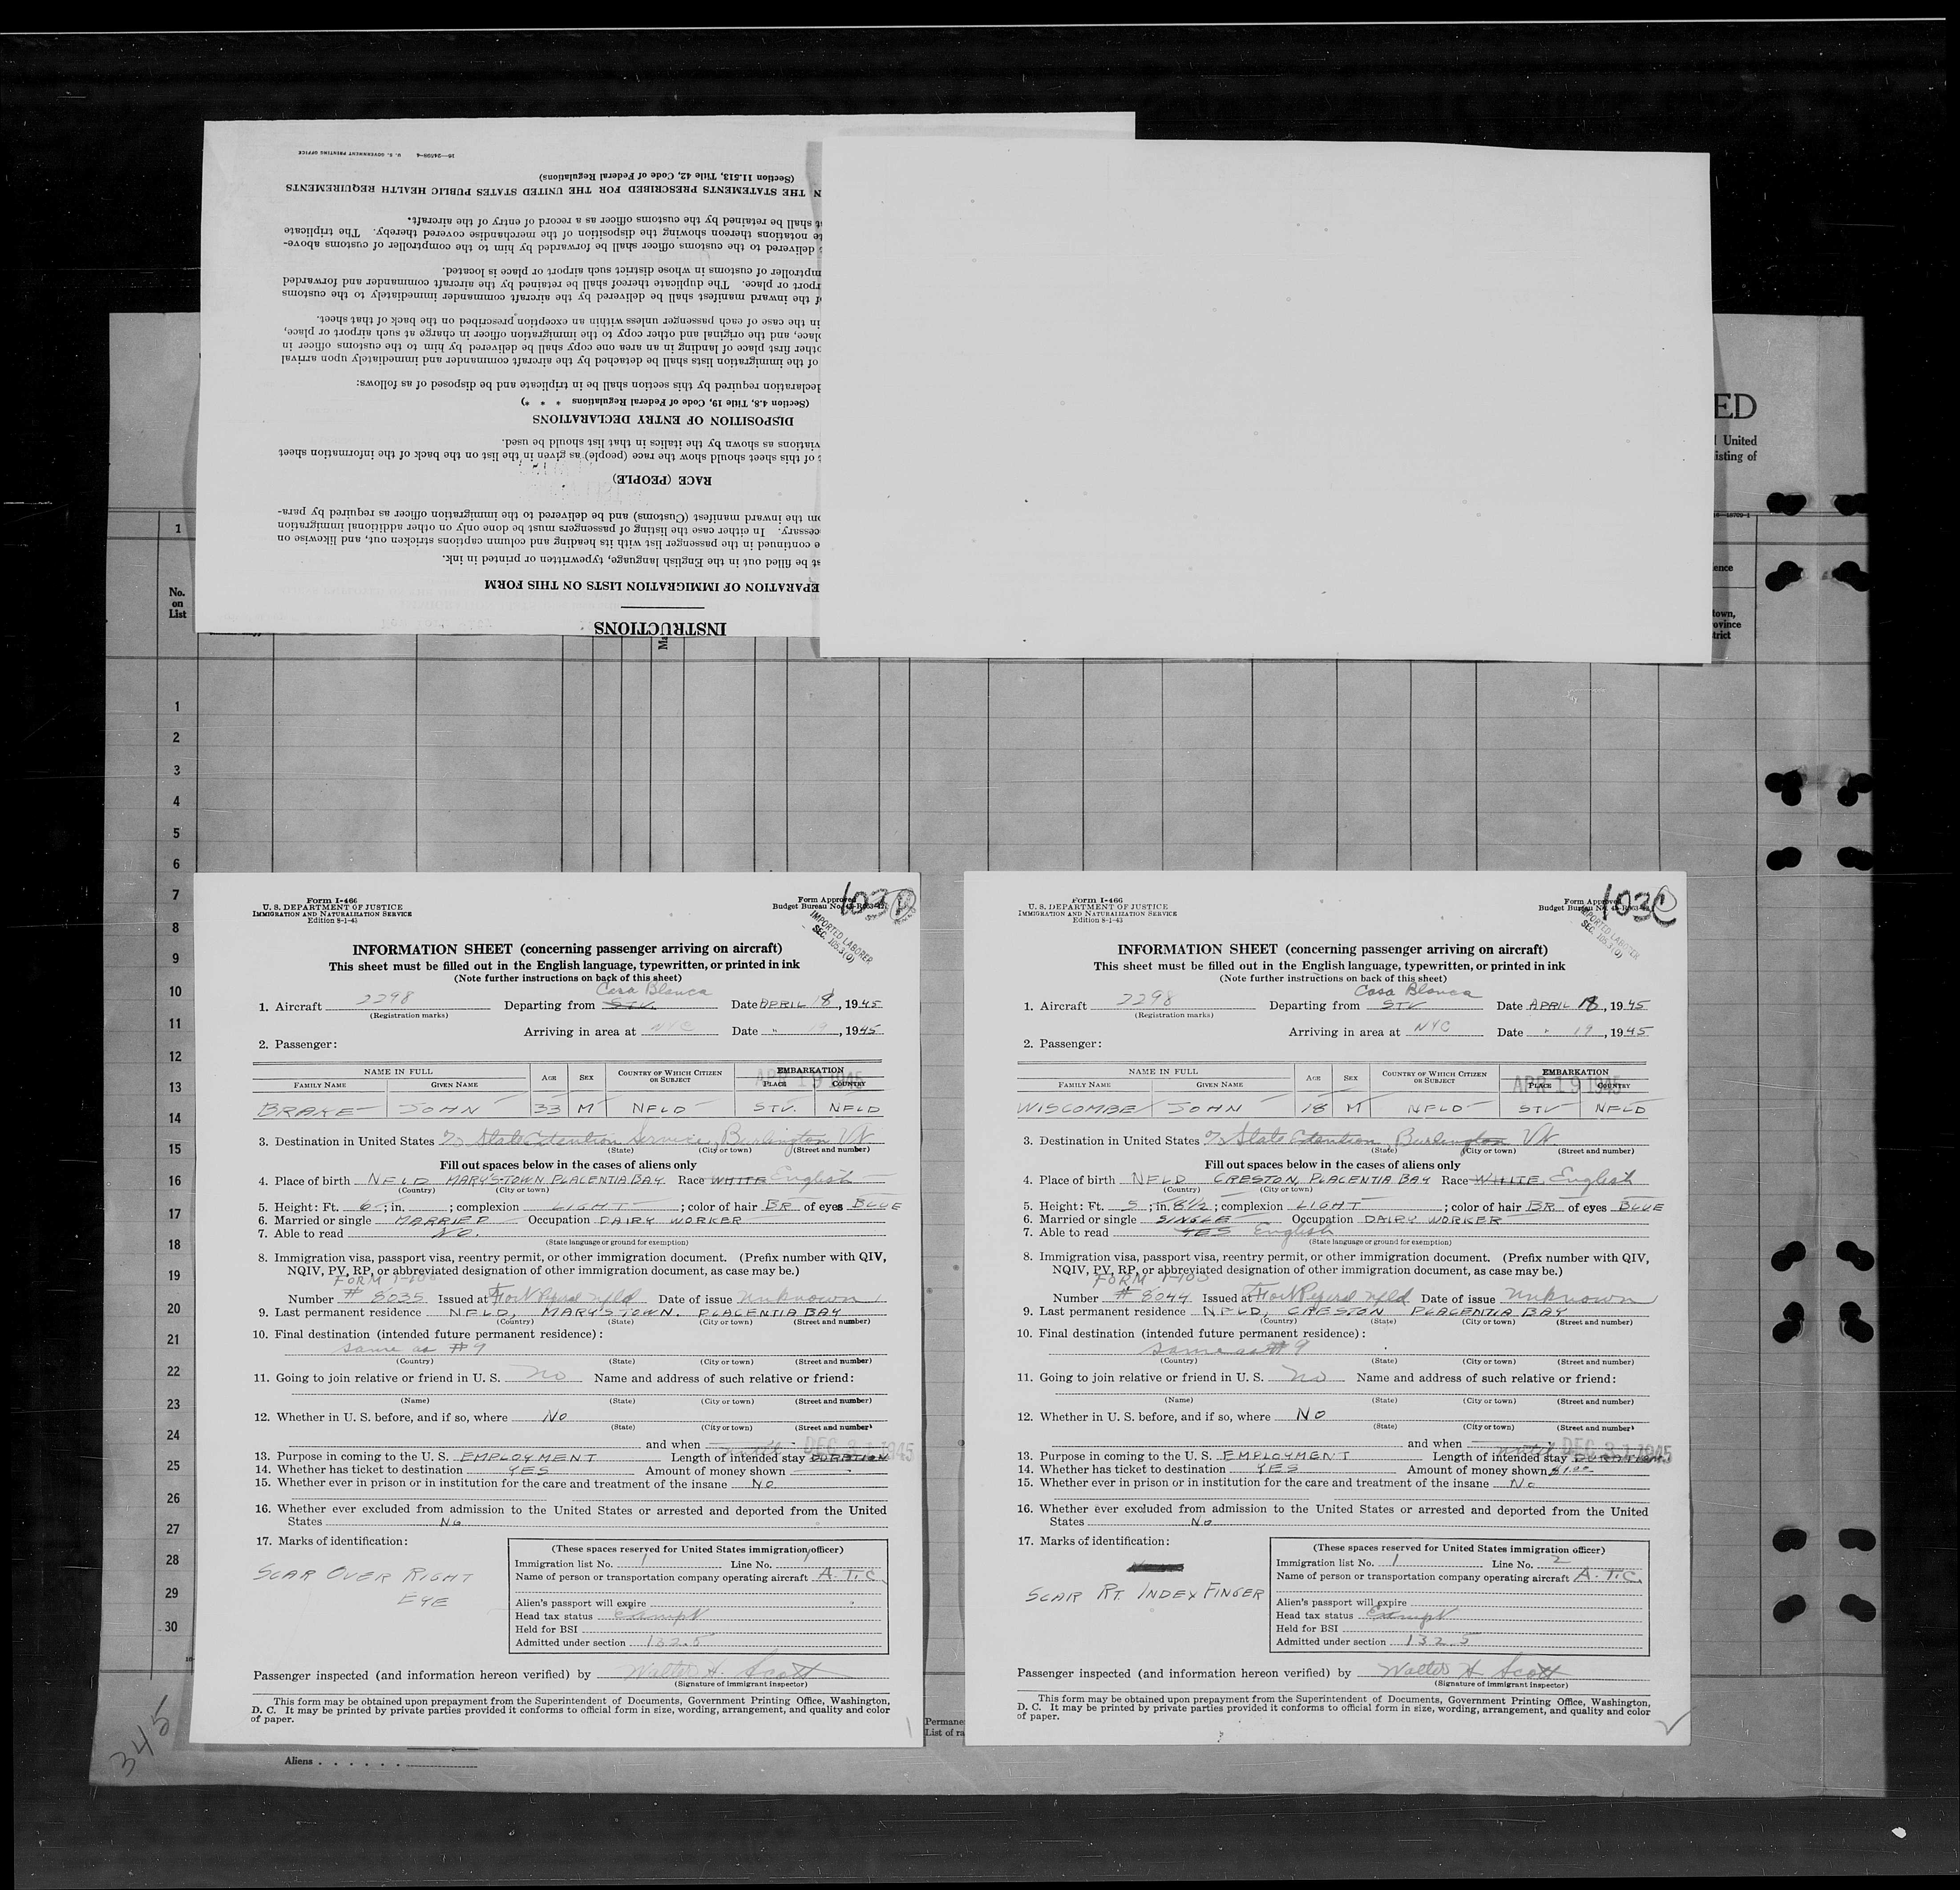 16—24598-4 U. S. GOVERNMENT PRINTING OFFICE
(Section 11.513, Title 42, Code of Federal Regulations)
THE STATEMENTS PRESCRIBED FOR THE UNITED STATES PUBLIC HEALTH REQUIREMENTS
shall be retained by the customs officer as a record of entry of the aircraft.
notations thereon showing the disposition of the merchandise covered thereby. The triplicate
delivered to the customs officer shall be forwarded by him to the comptroller of customs above-
mptroller of customs in whose district such airport or place is located.
rport or place. The duplicate thereof shall be retained by the aircraft commander and forwarded
of the inward manifest shall be delivered by the aircraft commander immediately to the customs
in the case of each passenger unless within an exception prescribed on the back of that sheet.
place, and the original and other copy to the immigration officer in charge at such airport or place,
other first place of landing in an area one copy shall be delivered by him to the customs officer in
of the immigration lists shall be detached by the aircraft commander and immediately upon arrival
declaration required by this section shall be in triplicate and be disposed of as follows:
(Section 4.8, Title 19, Code of Federal Regulations * * *)
DISPOSITION OF ENTRY DECLARATIONS
viations as shown by the italics in that list should be used.
of this sheet should show the race (people) as given in the list on the back of the information sheet
RACE (PEOPLE)
om the inward manifest (Customs) and be delivered to the immigration officer as required by para-
cessary. In either case the listing of passengers must be done only on other additional immigration
e continued in the passenger list with its heading and column captions stricken out, and likewise on
st be filled out in the English language, typewritten or printed in ink.
EPARATION OF IMMIGRATION LISTS ON THIS FORM
INSTRUCTIONS
ED
United
isting of
1
No.
on
List
ence
town,
ovince
trict
1
2
3
4
5
6
7
8
9
10
11
12
13
14
15
16
17
18
19
20
21
22
23
24
25
26
27
28
29
30
345
Aliens
Permane
List of ra
Form I-466
U. S. DEPARTMENT OF JUSTICE
IMMIGRATION AND NATURALIZATION SERVICE
Edition 8-1-43
Form Approved
Budget Bureau No.
IMPORTED LABORER
INFORMATION SHEET (concerning passenger arriving on aircraft)
This sheet must be filled out in the English language, typewritten, or printed in ink
(Note further instructions on back of this sheet)
Casa Blanca
1. Aircraft 2298 Departing from STV. Date APRIL 18, 1945
(Registration marks)
Arriving in area at NYC Date " 19, 1945
2. Passenger:
APR 19 1945
NAME IN FULL AGE SEX COUNTRY OF WHICH CITIZEN OR SUBJECT EMBARKATION
FAMILY NAME GIVEN NAME PLACE COUNTRY
BRAKE JOHN 33 M NFLD STV. NFLD
3. Destination in United States % State Extention Service, Burlington Vt.
(State) (City or town) (Street and number)
Fill out spaces below in the cases of aliens only
4. Place of birth NFLD MARY'S-TOWN PLACENTIA BAY Race WHITE English
(Country) (City or town)
5. Height: Ft. 6; in. ; complexion LIGHT; color of hair BR of eyes BLUE
6. Married or single MARRIED Occupation DAIRY WORKER
7. Able to read NO.
(State language or ground for exemption)
8. Immigration visa, passport visa, reentry permit, or other immigration document. (Prefix number with QIV,
NQIV, PV, RP, or abbreviated designation of other immigration document, as case may be.)
FORM
Number # 8035 Issued at Fort Pepperel Nfld Date of issue unknown
9. Last permanent residence NFLD, MARY'STOWN. PLACENTIA BAY
(Country) (State) (City or town) (Street and number)
10. Final destination (intended future permanent residence):
same as #9
(Country) (State) (City or town) (Street and number)
11. Going to join relative or friend in U. S. no Name and address of such relative or friend:
(Name) (State) (City or town) (Street and number)
12. Whether in U. S. before, and if so, where No
(State) (City or town) (Street and number)
and when
until DEC 31 1945
13. Purpose in coming to the U. S. EMPLOYMENT Length of intended stay DURATION
14. Whether has ticket to destination YES Amount of money shown
15. Whether ever in prison or in institution for the care and treatment of the insane No
16. Whether ever excluded from admission to the United States or arrested and deported from the United
States No
17. Marks of identification:
SCAR OVER RIGHT
EYE
(These spaces reserved for United States immigration officer)
Immigration list No. 1 Line No. 1
Name of person or transportation company operating aircraft A.T.C.
Alien's passport will expire
Head tax status exempt
Held for BSI
Admitted under section 132.5
Passenger inspected (and information hereon verified) by Walter H. Scott
(Signature of immigrant inspector)
This form may be obtained upon prepayment from the Superintendent of Documents, Government Printing Office, Washington,
D. C. It may be printed by private parties provided it conforms to official form in size, wording, arrangement, and quality and color
of paper.
Form I-466
U. S. DEPARTMENT OF JUSTICE
IMMIGRATION AND NATURALIZATION SERVICE
Edition 8-1-43
Form Approved
Budget Bureau No.
103C
IMPORTED LABORER
INFORMATION SHEET (concerning passenger arriving on aircraft)
This sheet must be filled out in the English language, typewritten, or printed in ink
(Note further instructions on back of this sheet)
Casa Blanca
1. Aircraft 2298 Departing from STV Date APRIL 18, 1945
(Registration marks)
Arriving in area at NYC Date " 19, 1945
2. Passenger:
APR 19 1945
NAME IN FULL AGE SEX COUNTRY OF WHICH CITIZEN OR SUBJECT EMBARKATION
FAMILY NAME GIVEN NAME PLACE COUNTRY
WISCOMBE JOHN 18 M NFLD STV NFLD
3. Destination in United States % State Extention, Burlington Vt.
(State) (City or town) (Street and number)
Fill out spaces below in the cases of aliens only
4. Place of birth NFLD CRESTON, PLACENTIA BAY Race WHITE English
(Country) (City or town)
5. Height: Ft. 5; in. 8½; complexion LIGHT; color of hair BR of eyes BLUE
6. Married or single SINGLE Occupation DAIRY WORKER
7. Able to read YES English
(State language or ground for exemption)
8. Immigration visa, passport visa, reentry permit, or other immigration document. (Prefix number with QIV,
NQIV, PV, RP, or abbreviated designation of other immigration document, as case may be.)
FORM
Number # 8044 Issued at Fort Pepperel Nfld. Date of issue Unknown
9. Last permanent residence NFLD, CRESTON PLACENTIA BAY
(Country) (State) (City or town) (Street and number)
10. Final destination (intended future permanent residence):
same as #9
(Country) (State) (City or town) (Street and number)
11. Going to join relative or friend in U. S. no Name and address of such relative or friend:
(Name) (State) (City or town) (Street and number)
12. Whether in U. S. before, and if so, where No
(State) (City or town) (Street and number)
and when
until DEC 31 1945
13. Purpose in coming to the U. S. EMPLOYMENT Length of intended stay DURATION
14. Whether has ticket to destination YES Amount of money shown $1.00
15. Whether ever in prison or in institution for the care and treatment of the insane No
16. Whether ever excluded from admission to the United States or arrested and deported from the United
States No
17. Marks of identification:
SCAR RT. INDEX FINGER
(These spaces reserved for United States immigration officer)
Immigration list No. 1 Line No. 2
Name of person or transportation company operating aircraft A.T.C.
Alien's passport will expire
Head tax status Exempt
Held for BSI
Admitted under section 132.5
Passenger inspected (and information hereon verified) by Walter H Scott
(Signature of immigrant inspector)
This form may be obtained upon prepayment from the Superintendent of Documents, Government Printing Office, Washington,
D. C. It may be printed by private parties provided it conforms to official form in size, wording, arrangement, and quality and color
of paper.